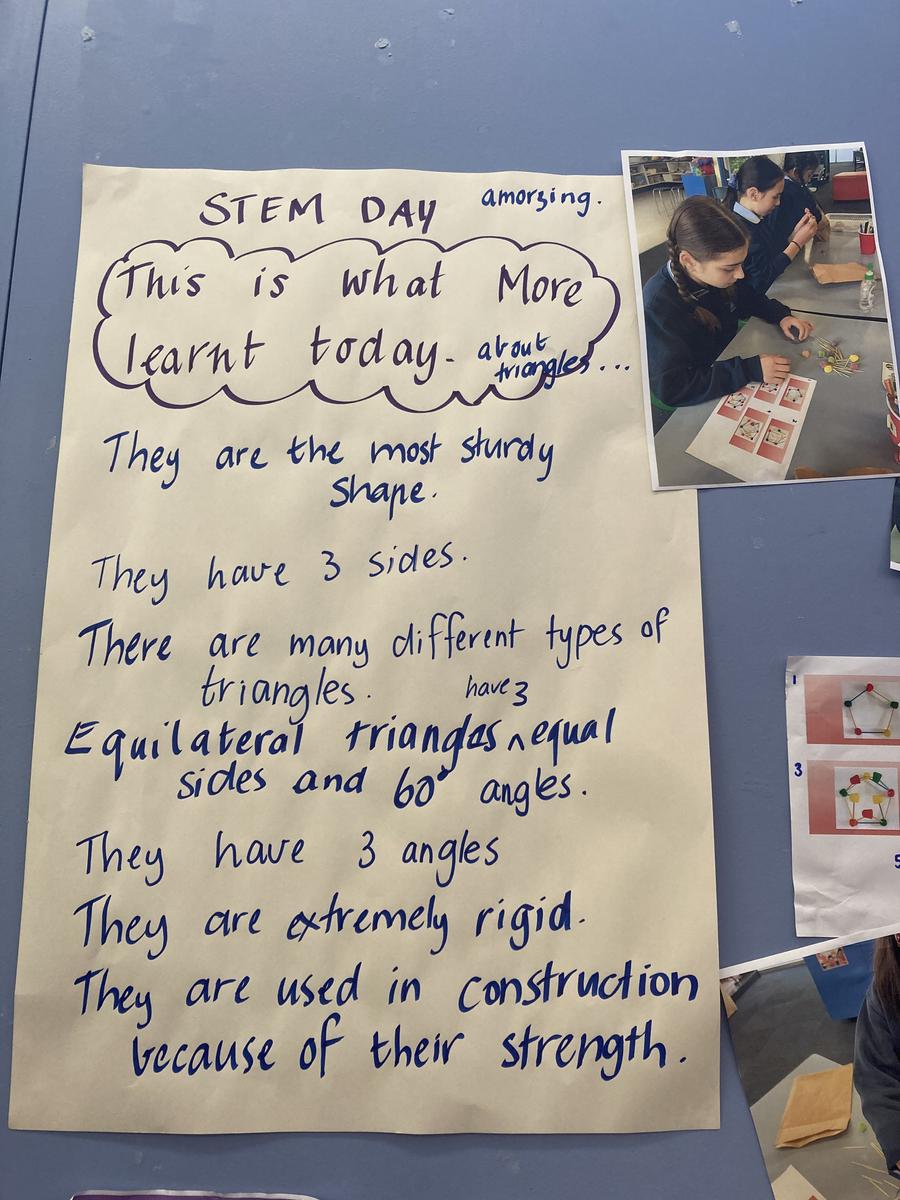 STEM DAY amorzing.
This is what More
learnt today. about
triangles...
They are the most sturdy
Shape.
They have 3 sides.
There are many different types of
triangles. have 3
Equilateral triangles ^ equal
sides and 60° angles.
They have 3 angles
They are extremely rigid.
They are used in construction
because of their strength.
1
3
5